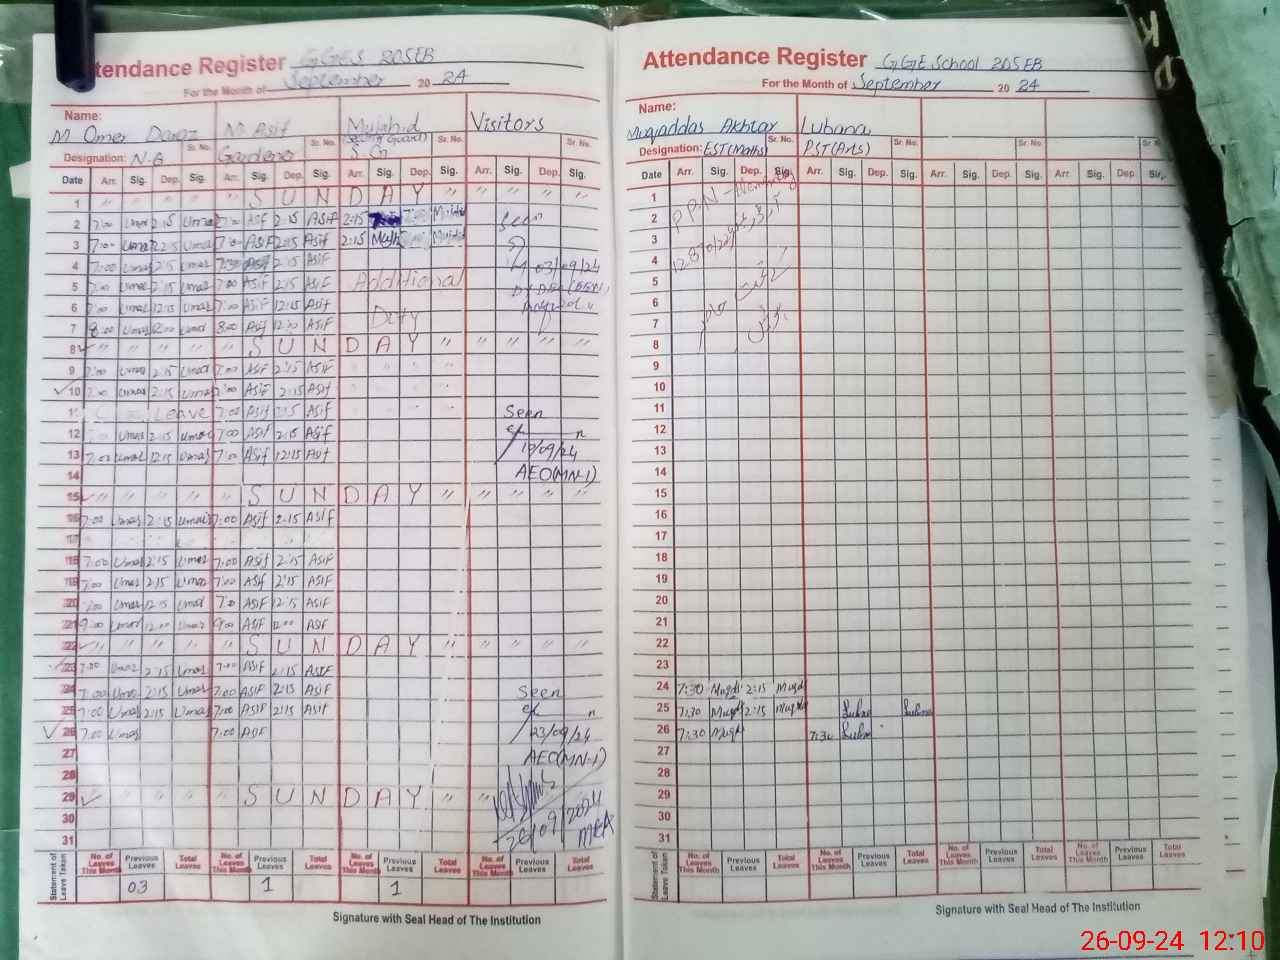 Attendance Register GGES 205EB
For the Month of September 20 24
Name:
M Omer Daraz M Asif Mujahid Visitors
(Security Guard)
Designation: N-G Sr. No. Gardener Sr. No. S.G Sr. No. Sr. No.
Date Arr. Sig. Dep. Sig. Arr. Sig. Dep. Sig. Arr. Sig. Dep. Sig. Arr. Sig. Dep. Sig.
1 " " " " " S U N D A Y " " " " "
2 7:00 Umar 2:15 Umar 7:00 Asif 2:15 Asif 2:15 Seen
3 7:00 Umar 2:15 Umar 7:00 Asif 2:15 Asif 2:15
4 7:00 Umar 2:15 Umar 7:30 Asif 2:15 Asif 03/09/24
5 7:00 Umar 2:15 Umar 7:00 Asif 2:15 Asif Additional
6 7:00 Umar 12:15 Umar 7:00 Asif 12:15 Asif
7 8:00 Umar 12:00 Umar 8:00 Asif 12:00 Asif Duty
8 " " " " " S U N D A Y " " " " "
9 7:00 Umar 2:15 Umar 7:00 Asif 2:15 Asif
10 7:00 Umar 2:15 Umar 7:00 Asif 2:15 Asif
11 Leave 7:00 Asif 2:15 Asif Seen
12 Umar 2:15 Umar 7:00 Asif 2:15 Asif
13 7:00 Umar 12:15 Umar 7:00 Asif 12:15 Asif /09/24
14 AEO(MN-1)
15 " " " " " S U N D A Y " " " " "
16 7:00 Umar 2:15 Umar 7:00 Asif 2:15 Asif
17
18 7:00 Umar 2:15 Umar 7:00 Asif 2:15 Asif
19 7:00 Umar 2:15 Umar 7:00 Asif 2:15 Asif
20 7:00 Umar 12:15 Umar 7:00 Asif 12:15 Asif
21 9:00 Umar 12:00 Umar 9:00 Asif 12:00 Asif
22 " " " " " S U N D A Y " " " " "
23 7:00 Umar 2:15 Umar 7:00 Asif 2:15 Asif
24 7:00 Umar 2:15 Umar 7:00 Asif 2:15 Asif Seen
25 7:00 Umar 2:15 Umar 7:00 Asif 2:15 Asif
26 7:00 Umar 7:00 Asif 23/09/24
27 AEO(MN-1)
28
29 " " " " " S U N D A Y " "
30 26/09/2024
31 MEA
Statement of Leave Taken No. of Leaves This Month Previous Leaves Total Leaves No. of Leaves This Month Previous Leaves Total Leaves No. of Leaves This Month Previous Leaves Total Leaves No. of Leaves This Month Previous Leaves Total Leaves
03 1 1
Signature with Seal Head of The Institution
Attendance Register GGE School 205EB
For the Month of September 20 24
Name:
Muqaddas Akhtar Lubana
Designation: EST(Maths) Sr. No. PST(Arts) Sr. No. Sr. No. Sr. No.
Date Arr. Sig. Dep. Sig. Arr. Sig. Dep. Sig. Arr. Sig. Dep. Sig. Arr. Sig. Dep. Sig.
1
2
3
4
5
6
7
8
9
10
11
12
13
14
15
16
17
18
19
20
21
22
23
24 7:30 Muqds 2:15 Muqds
25 7:30 Muqds 2:15 Muqds Lubna Lubna
26 7:30 Muqds 7:30 Lubna
27
28
29
30
31
Statement of Leave Taken No. of Leaves This Month Previous Leaves Total Leaves No. of Leaves This Month Previous Leaves Total Leaves No. of Leaves This Month Previous Leaves Total Leaves No. of Leaves This Month Previous Leaves Total Leaves
Signature with Seal Head of The Institution
26-09-24 12:10